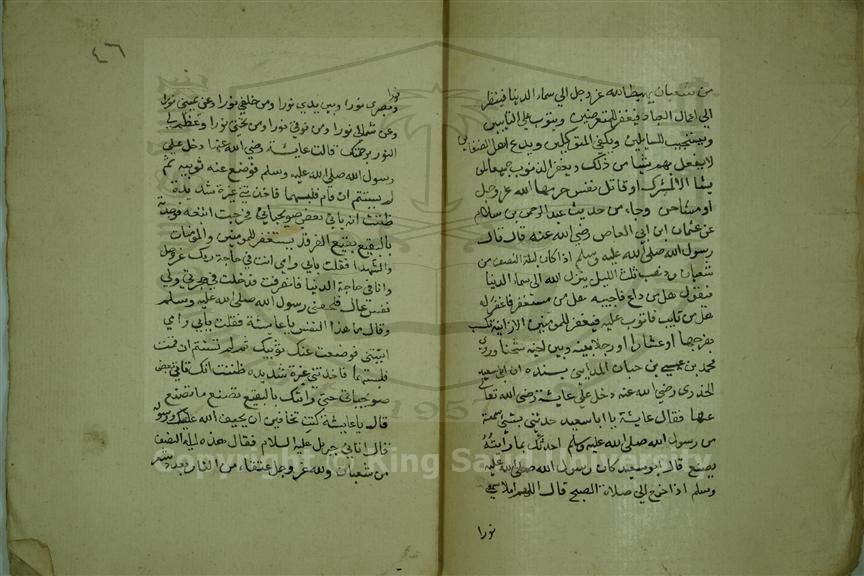 من شعبان يهبط الله عز وجل الي سماء الدنيا فينظر
الي اعمال العباد فيغفر للمستغفرين ويتوب علي التايبين
ويستجيب للسايلين ويكفي المتوكلين ويدع اهل الضغاين
لا يفعل بهم شيا من ذلك ويغفر الذنوب جميعا لمن
يشا الا لمشرك او قاتل نفس حرمها الله عز وجل
او مشاحن وجاء من حديث عبد الرحمن بن سلام
عن عثمان ابن ابي العاص رضي الله عنه قال قال
رسول الله صلي الله عليه وسلم اذا كان ليلة النصف من
شعبان وذهب ثلث الليل ينزل الله الي سماء الدنيا
فيقول هل من داع فاجيبه هل من مستغفر فاغفر له
هل من تايب فاتوب عليه فيغفر للمومنين الا زانية تكسب
بفرجها او عشارا او رجلا بينه وبين اخيه شحنا وروي
محمد بن عيسي بن حبان المدايني بسنده ان ابي سعيد
الخدري رضي الله عنه دخل علي عائشة رضي الله تعالي
عنها فقال عايشة يا ابا سعيد حدثني بشي سمعته
من رسول الله صلي الله عليه وسلم احدثك بما رايته
يصنع قال ابو سعيد كان رسول الله صلي الله عليه
وسلم اذا خرج الي صلاة الصبح قال اللهم املا سمعي
نورا
٤٦
نورا
وبصري نورا وبين يدي نورا ومن خلفي نورا وعن يميني نورا
وعن شمالي نورا ومن فوقي نورا ومن تحتي نورا وعظم لي
النور برحمتك قالت عايشة رضي الله عنها دخل علي
رسول الله صلي الله عليه وسلم فوضع عنه ثوبيه ثم
لم يستتم ان قام فلبسهما فاخذتني غيرة شديدة
ظننت انه ياتي بعض صويحباتي فخرجت اتبعه فوجدته
بالبقيع بقيع الغرقد يستغفر للمومنين والمومنات
والشهدا فقلت بابي وامي انت في حاجة ربك عز وجل
وانا في حاجة الدنيا فانصرفت فدخلت في حجرتي ولي
نفس عال فلحقني رسول الله صلي الله عليه وسلم
وقال ما هذا النفس يا عايشة فقلت بابي وامي
اتيتني فوضعت عنك ثوبيك ثم لم تستتم ان قمت
فلبستهما فاخذتني غيرة شديدة ظننت انك تاتي بعض
صويحباتي حتي رايتك بالبقيع تصنع ما تصنع
قال يا عايشة كنت تخافين ان يحيف الله عليك ورسوله
قال اتاني جبريل عليه السلام فقال هذه ليلة النصف
من شعبان ولله عز وجل عتقاء من النار بعدد شعر
Copyright © King Saud University
1957